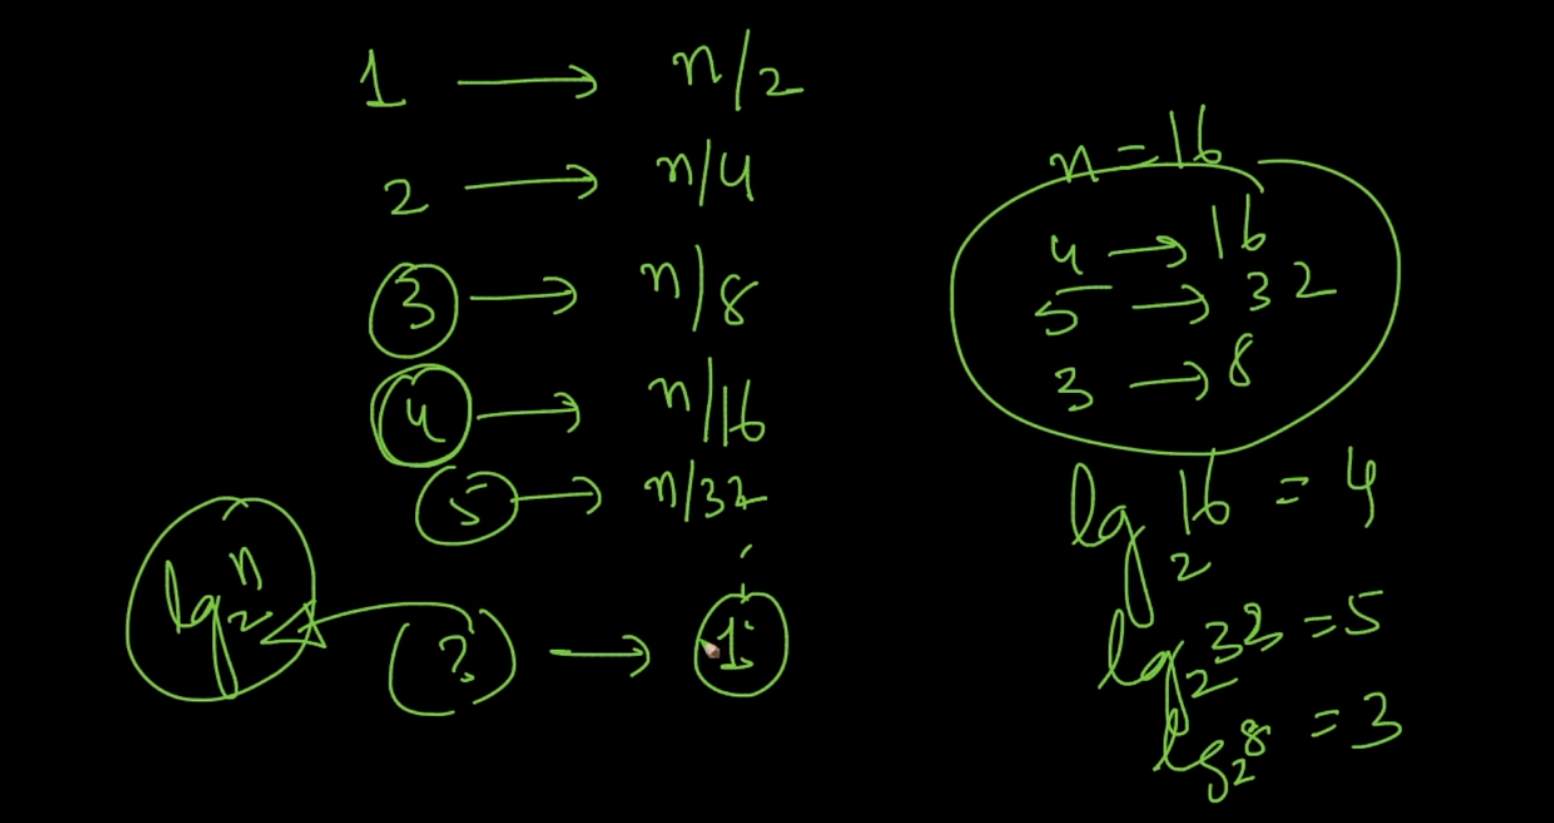 1 → n/2
2 → n/4
3 → n/8
4 → n/16
5 → n/32
lg₂n
? → 1
n = 16
4 → 16
5 → 32
3 → 8
lg₂16 = 4
lg₂32 = 5
lg₂8 = 3